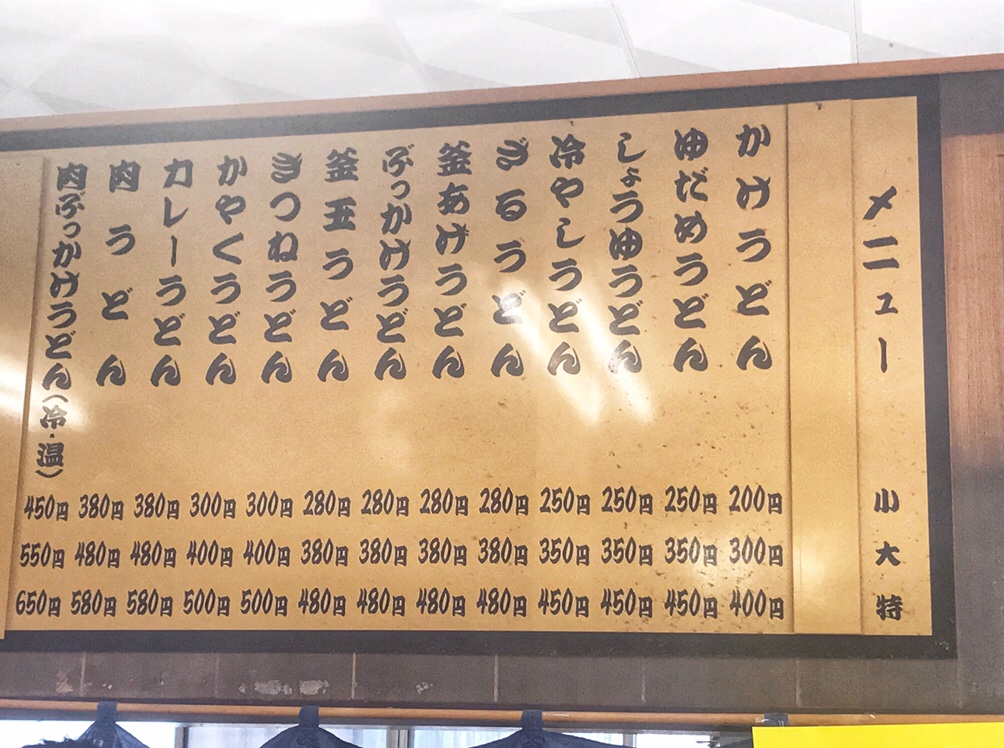 メニュー 小 大 特
かけうどん 200円 300円 400円
ゆだめうどん 250円 350円 450円
しょうゆうどん 250円 350円 450円
冷やしうどん 250円 350円 450円
ざるうどん 280円 380円 480円
釜あげうどん 280円 380円 480円
ぶっかけうどん 280円 380円 480円
釜玉うどん 280円 380円 480円
きつねうどん 300円 400円 500円
かやくうどん 300円 400円 500円
カレーうどん 380円 480円 580円
肉うどん 380円 480円 580円
肉ぶっかけうどん(冷・温) 450円 550円 650円